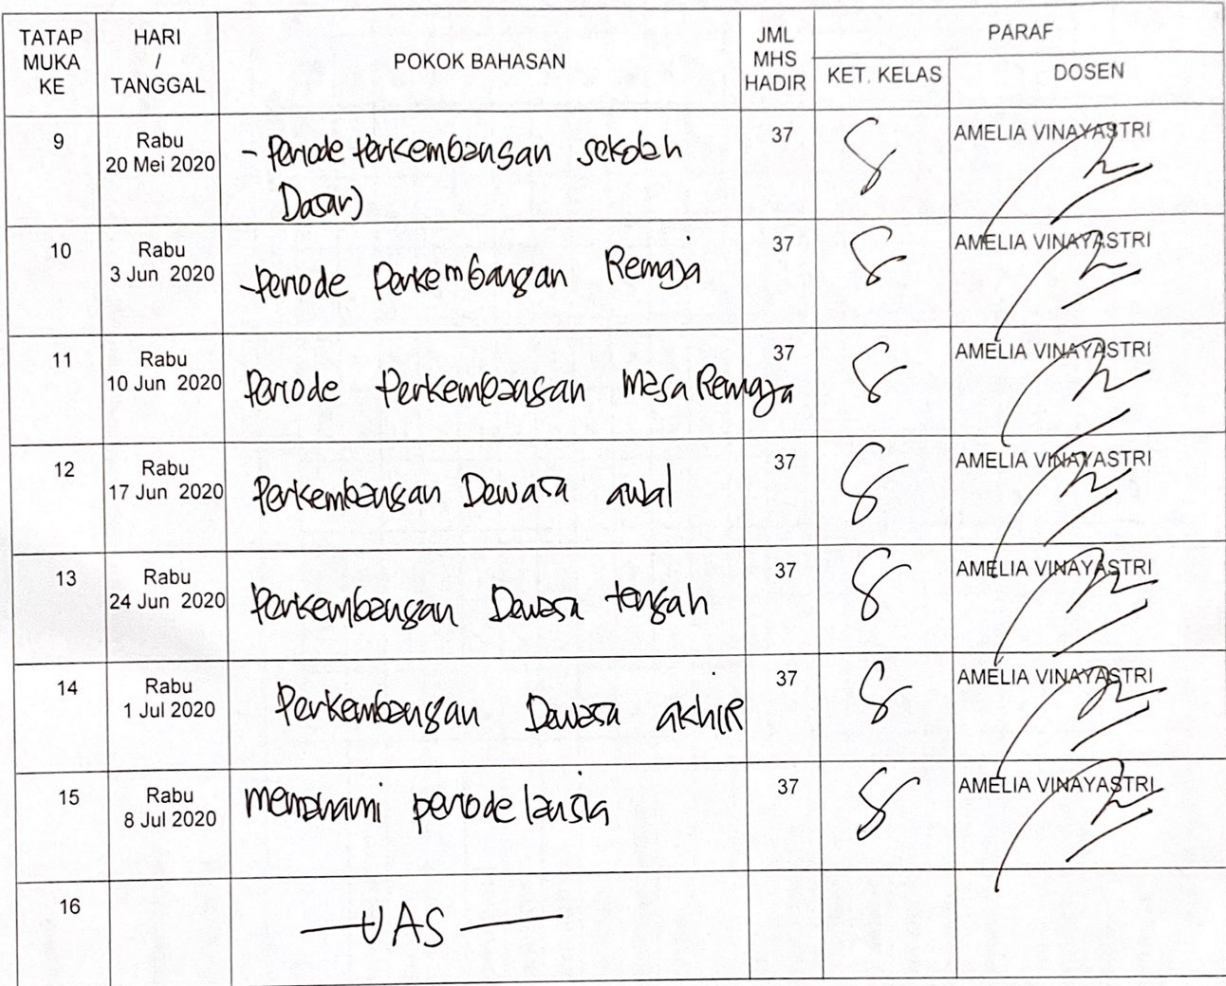 TATAP MUKA KE
HARI / TANGGAL
POKOK BAHASAN
JML MHS HADIR
PARAF
KET. KELAS
DOSEN
9
Rabu
20 Mei 2020
- Periode Perkembangan sekolah
Dasar)
37
AMELIA VINAYASTRI
10
Rabu
3 Jun 2020
- Periode Perkembangan Remaja
37
AMELIA VINAYASTRI
11
Rabu
10 Jun 2020
Periode Perkembangan Masa Remaja
37
AMELIA VINAYASTRI
12
Rabu
17 Jun 2020
Perkembangan Dewasa awal
37
AMELIA VINAYASTRI
13
Rabu
24 Jun 2020
Perkembangan Dewasa tengah
37
AMELIA VINAYASTRI
14
Rabu
1 Jul 2020
Perkembangan Dewasa akhiR
37
AMELIA VINAYASTRI
15
Rabu
8 Jul 2020
memahami periode lansia
37
AMELIA VINAYASTRI
16
— UAS —